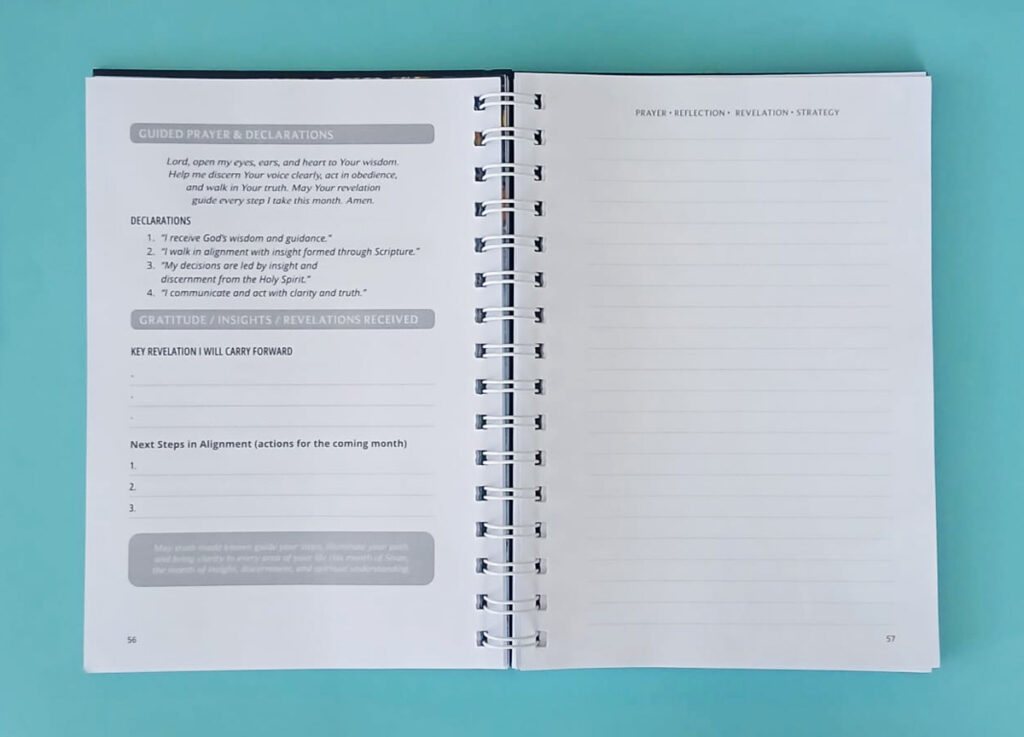 GUIDED PRAYER & DECLARATIONS
Lord, open my eyes, ears, and heart to Your wisdom.
Help me discern Your voice clearly, act in obedience,
and walk in Your truth. May Your revelation
guide every step I take this month. Amen.
DECLARATIONS
1. “I receive God’s wisdom and guidance.”
2. “I walk in alignment with insight formed through Scripture.”
3. “My decisions are led by insight and
discernment from the Holy Spirit.”
4. “I communicate and act with clarity and truth.”
GRATITUDE / INSIGHTS / REVELATIONS RECEIVED
KEY REVELATION I WILL CARRY FORWARD
Next Steps in Alignment (actions for the coming month)
1.
2.
3.
May truth made known guide your steps, illuminate your path,
and bring clarity to every area of your life this month of Sivan,
the month of insight, discernment, and spiritual understanding.
56
PRAYER • REFLECTION • REVELATION • STRATEGY
57